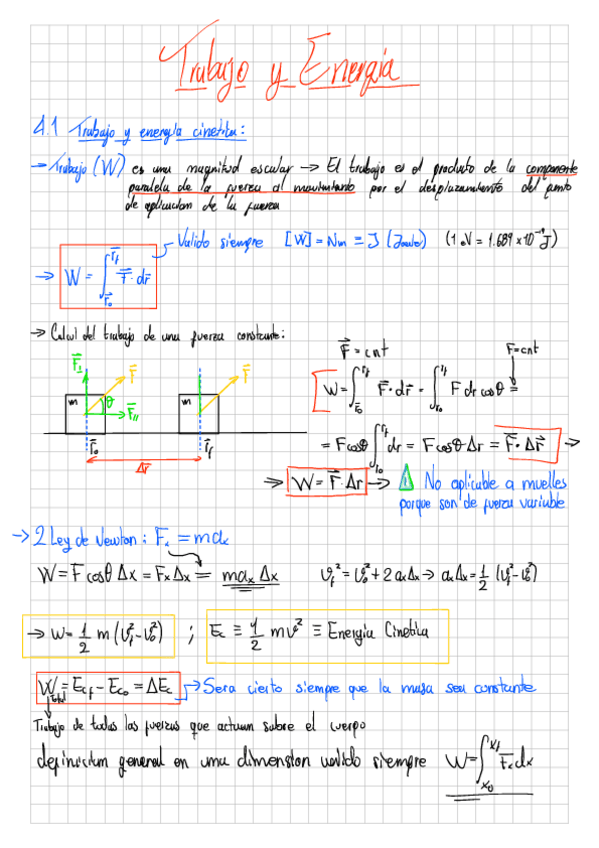 Trabajo y Energía
4.1 Trabajo y energía cinetica:
→ Trabajo (W) es una magnitud escalar → El trabajo es el producto de la componente
paralela de la fuerza al movimiento por el desplazamiento del punto
de aplicacion de la fuerza
→ W = ∫_{r⃗₀}^{r⃗f} F⃗·dr⃗ Valido siempre [W] = Nm ≡ J (Joule) (1 eV = 1.689 x 10⁻¹⁹ J)
→ Calcul del trabajo de una fuerza constante:
F⃗ = cnt F = cnt
F⃗⊥ F⃗ F⃗
m θ F⃗∥ m
r⃗₀ r⃗f
Δr⃗
W = ∫_{r⃗₀}^{r⃗f} F⃗·dr⃗ = ∫_{r₀}^{rf} F dr cosθ =
= F cosθ ∫_{r₀}^{rf} dr = F cosθ·Δr = F⃗·Δr⃗ →
→ W = F⃗·Δr → ! No aplicable a muelles
porque son de fuerza variable
→ 2 Ley de Newton: Fₓ = maₓ
W = F cosθ Δx = Fₓ Δx = maₓ Δx vf² = v₀² + 2aₓΔx → aₓΔx = 1/2 (vf² - v₀²)
→ W = 1/2 m (vf² - v₀²) ; Ec ≡ 1/2 mv² ≡ Energia Cinetica
W_Total = Ecf - Eco = ΔEc → Sera cierto siempre que la masa sea constante
Trabajo de todas las fuerzas que actuan sobre el cuerpo
definicion general en una dimension valido siempre W = ∫_{x₀}^{xf} Fₓdx